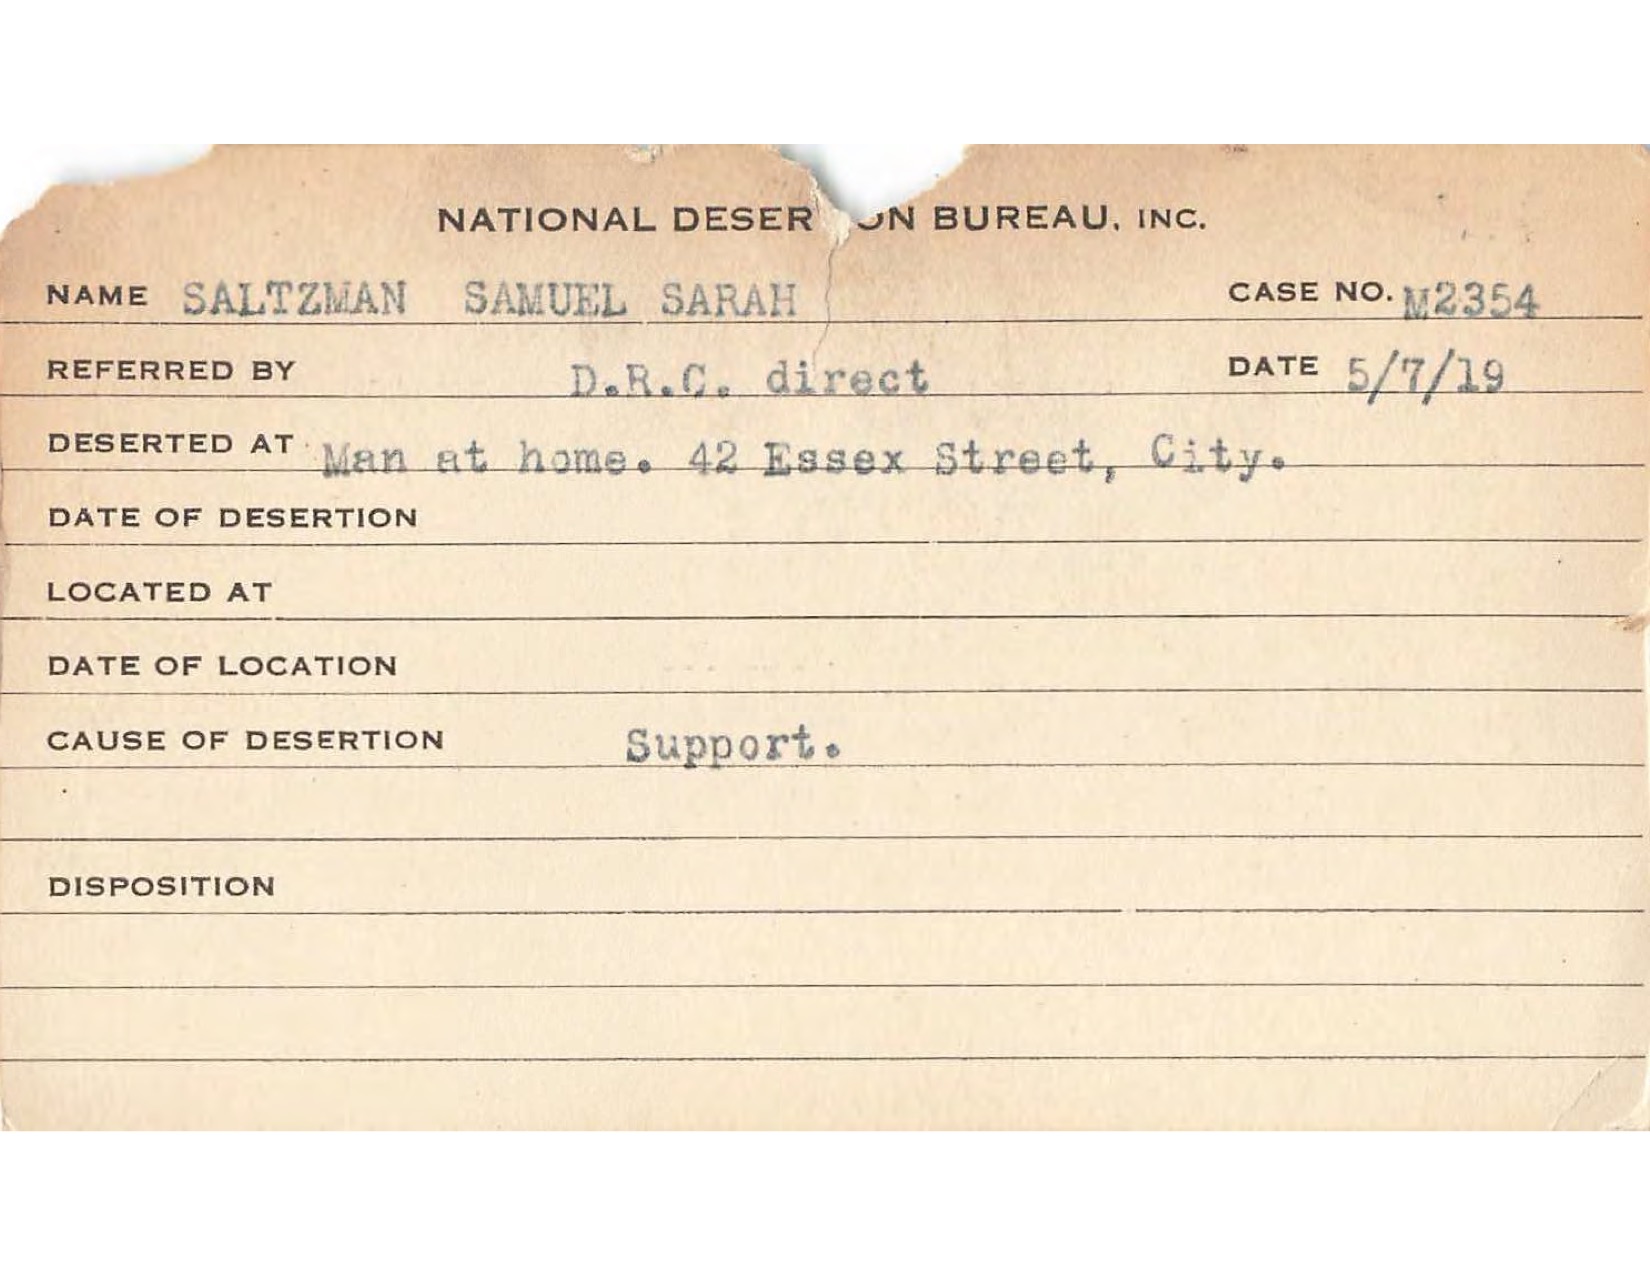 NATIONAL DESER ON BUREAU, INC.
NAME SALTZMAN SAMUEL SARAH CASE NO. M2354
REFERRED BY D.R.C. direct DATE 5/7/19
DESERTED AT Man at home. 42 Essex Street, City.
DATE OF DESERTION
LOCATED AT
DATE OF LOCATION
CAUSE OF DESERTION Support.
DISPOSITION